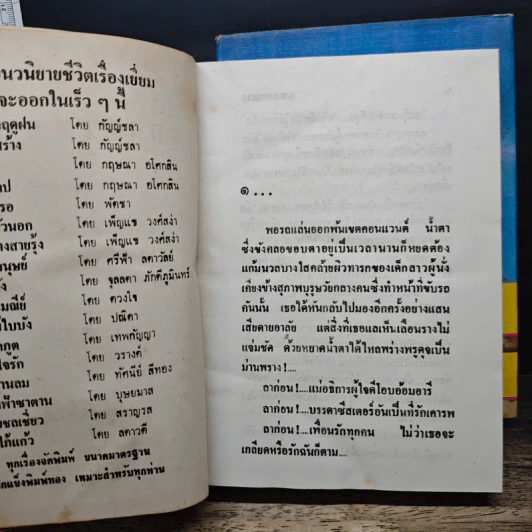 นวนิยายชีวิตเรื่องเยี่ยม
จะออกในเร็ว ๆ นี้
ฤดูฝน โดย กัญญ์ชลา
โดย กัญญ์ชลา
โดย กฤษณา อโศกสิน
โดย กฤษณา อโศกสิน
โดย พัดชา
โดย เพ็ญแข วงศ์สง่า
สายรุ้ง โดย เพ็ญแข วงศ์สง่า
มนุษย์ โดย ศรีฟ้า ลดาวัลย์
โดย จุลลดา ภักดีภูมินทร์
โดย ดวงใจ
โดย ปณิตา
โดย เทพกัญญา
โดย วรางค์
โดย ทัศนีย์ สีทอง
โดย บุษยมาส
โดย สราญวส
โดย ลดาวดี
ทุกเรื่องจัดพิมพ์ ขนาดมาตรฐาน
ปกแข็งพิมพ์ทอง เหมาะสำหรับทุกท่าน
๑...
พอรถแล่นออกพ้นเขตคอนแวนต์ น้ำตา
ซึ่งขังคลอขอบตาอยู่เป็นเวลานานก็หยดต้อง
แก้มนวลบางใสคล้ายผิวทารกของเด็กสาวผู้นั่ง
เคียงข้างสุภาพบุรุษวัยกลางคนซึ่งทำหน้าที่ขับรถ
คันนั้น เธอได้หันกลับไปมองอีกครั้งอย่างแสน
เสียดายอาลัย แต่สิ่งที่เธอแลเห็นเลือนรางไม่
แจ่มชัด ด้วยหยาดน้ำตาได้ไหลพร่างพรูดุจเป็น
ม่านพราง!....
ลาก่อน!....แม่อธิการผู้ใจดีโอบอ้อมอารี
ลาก่อน!....บรรดาซีสเตอร์อันเป็นที่รักเคารพ
ลาก่อน!....เพื่อนรักทุกคน ไม่ว่าเธอจะ
เกลียดหรือรักฉันก็ตาม....